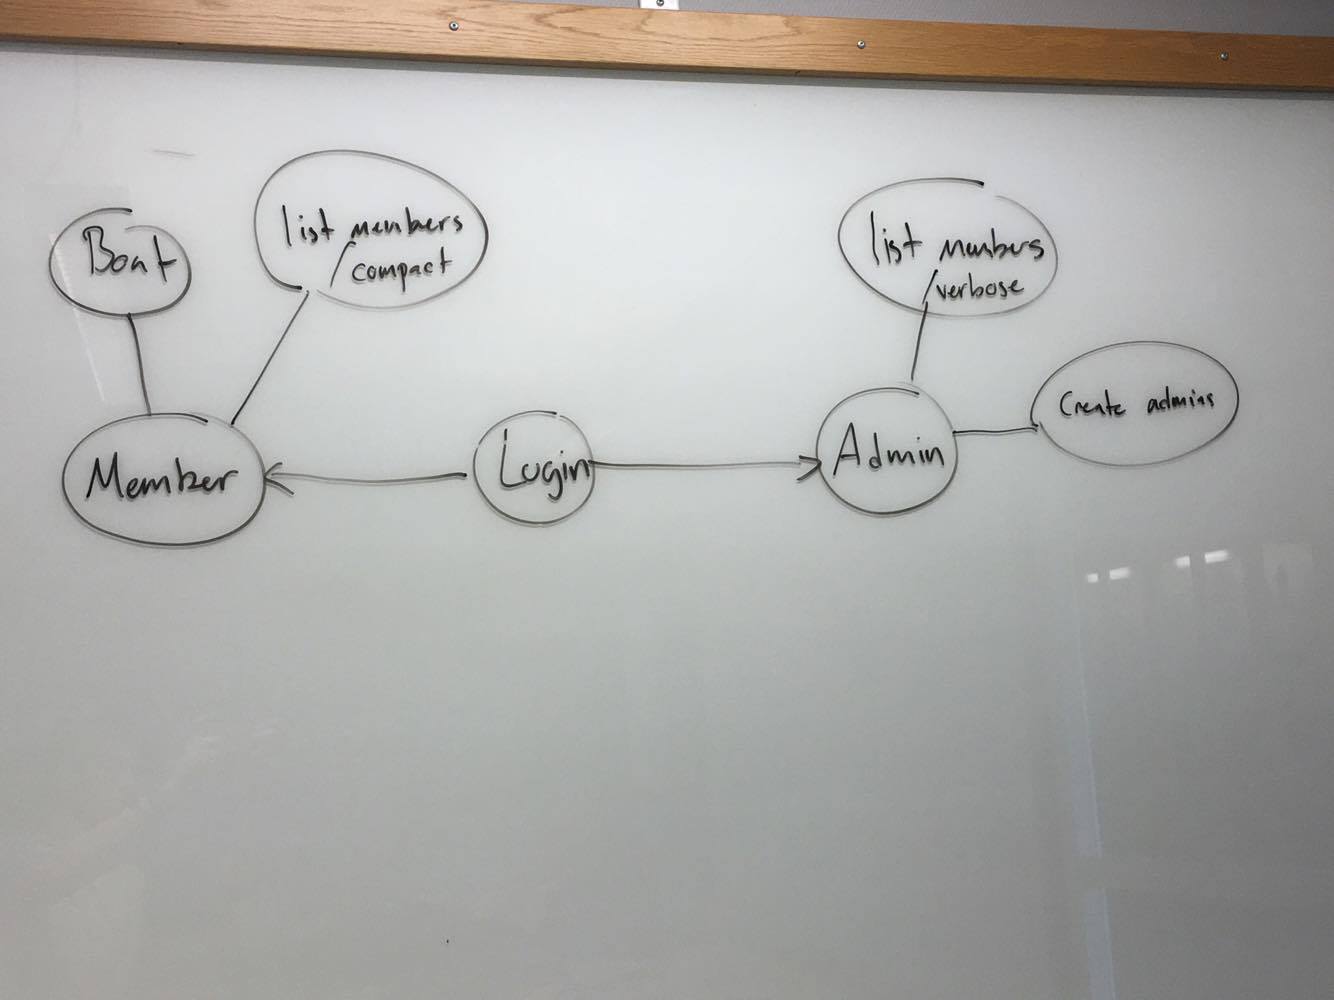 Boat
list members
/compact
list members
/verbose
Create admins
Member
Login
Admin